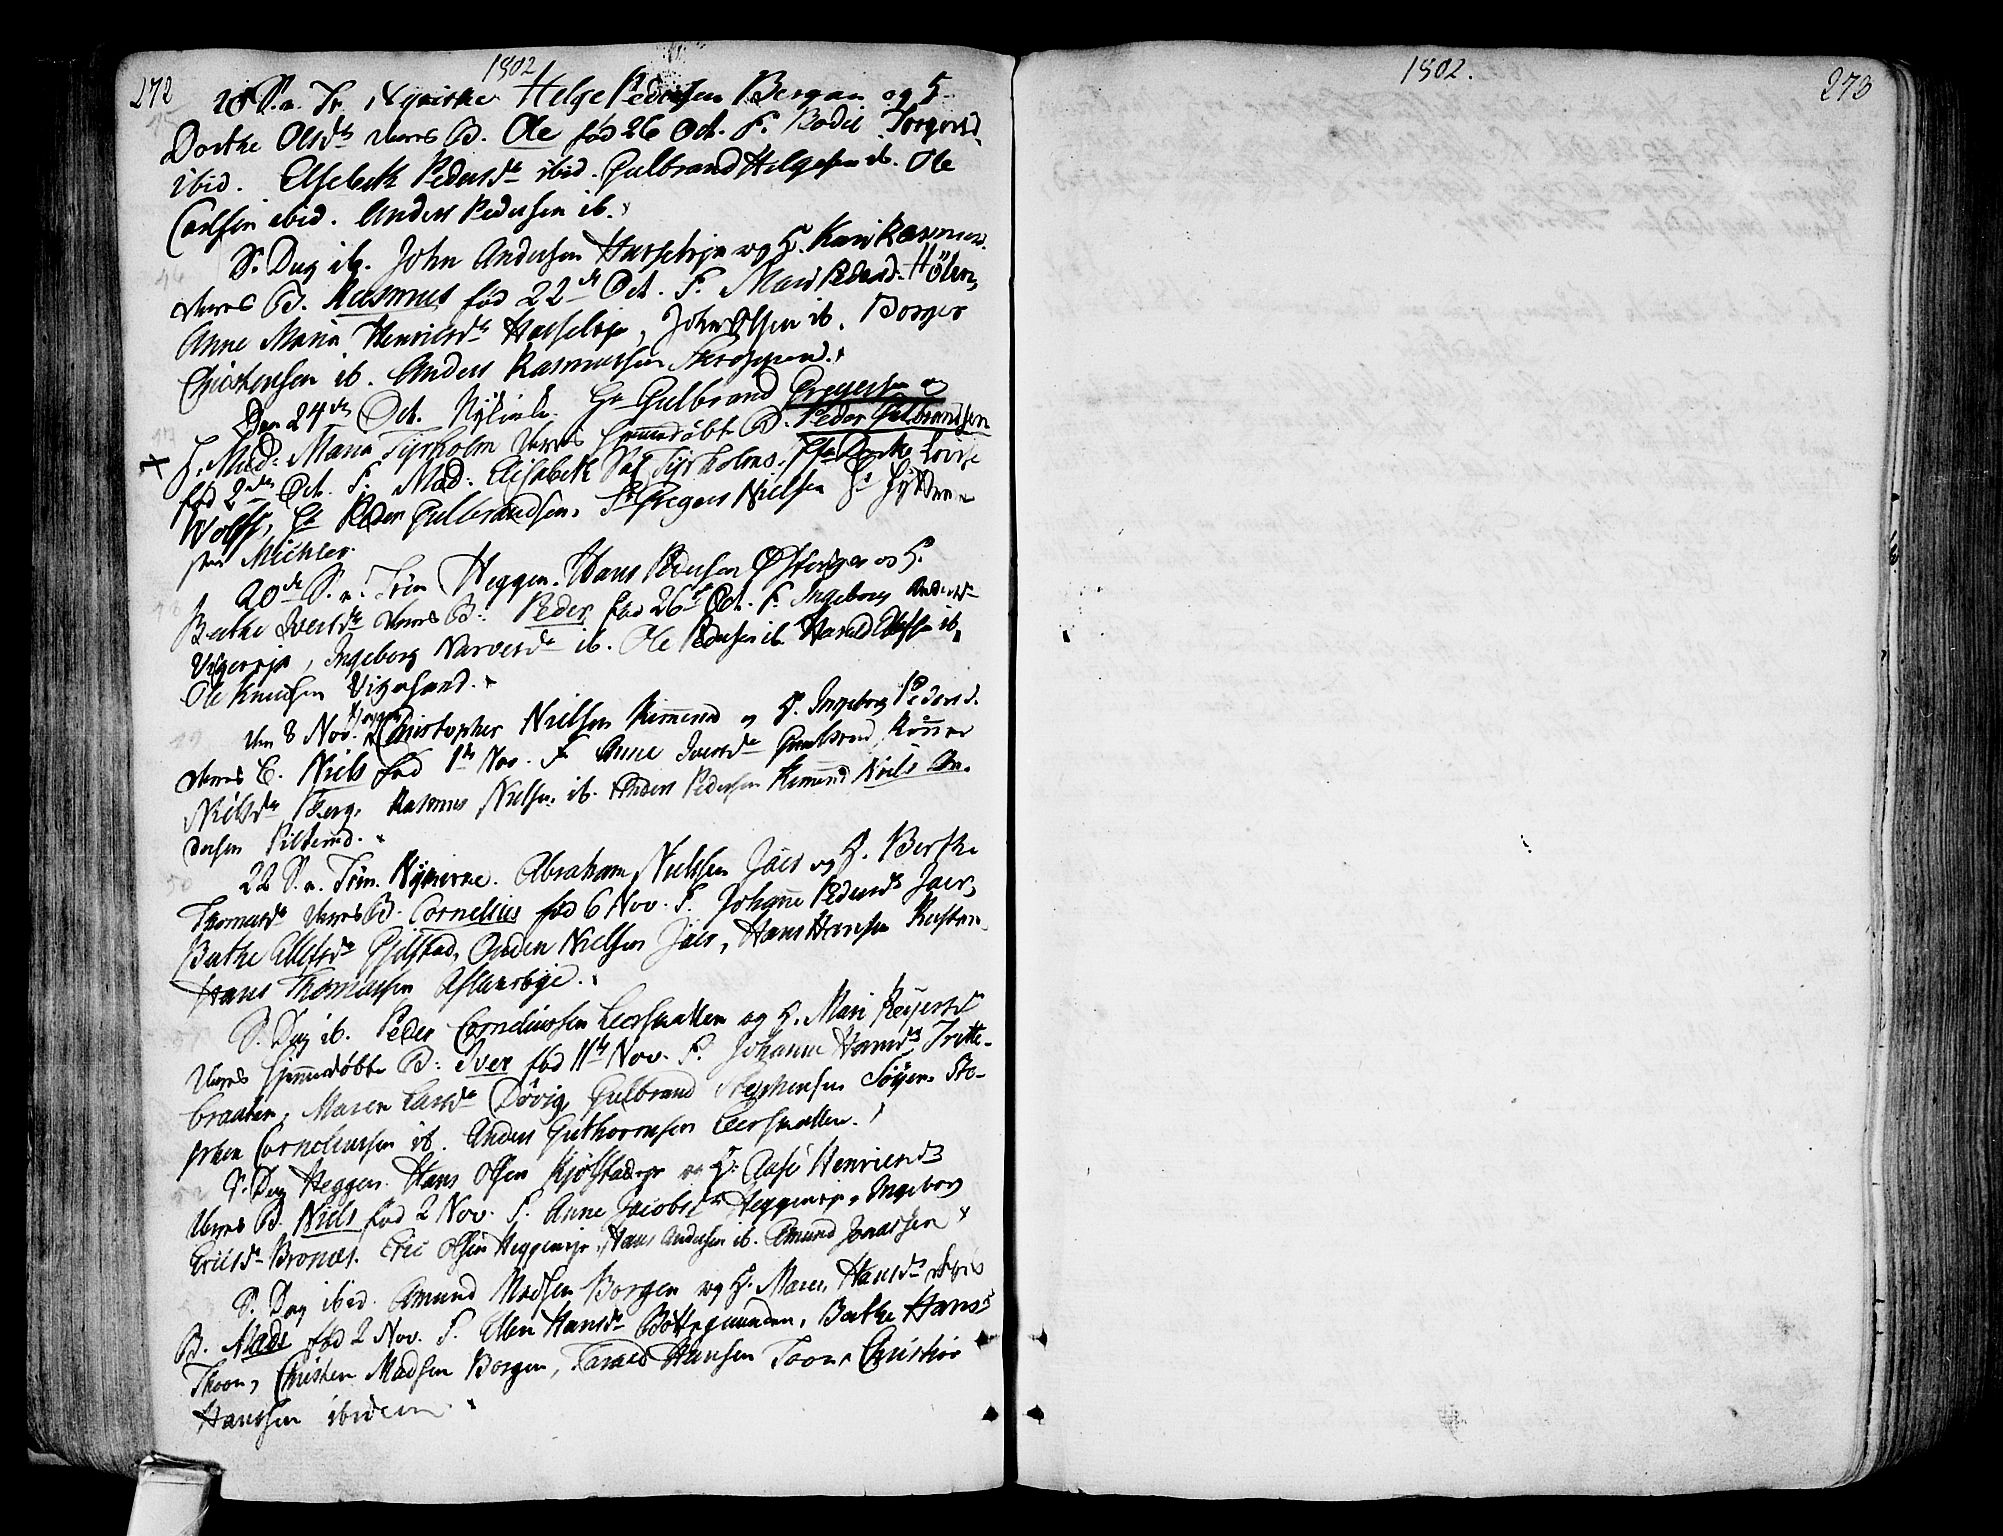 272
1802
20 S. n. Tr. Nykirke Helge Pedersen Bergan og H.
Dorthe Olsdr deres B. Ole fød 26 Oct. F. Bodil Torgersd.
ibid. Elsebeth Pedersdr ibid. Gulbrand Helgesen ib. Ole
Carlsen ibid. Anders Pedersen ib.
S. Dag ib. John Andersen Hasselseje og H. Kari Rasmusd.
deres B. Rasmus fød 22de Oct. F. Mari Pedersd. Hölen,
Anne Maria Henricsdr Hasseleje, John Olsen ib. Borger
Christensen ib. Anders Rasmussen
Den 24de Oct. Nykirke. Hr Gulbrand Gregersen og
H. Mad. Maria Tyrholm deres hjemmedøbte B. Peder Gulbrandsen
fød 2den Oct. F. Mad. Elisabeth Sal. Tyrholms. Lovise
Wolff, Hr Peder Gulbrandsen, Sr Gregers Nielsen Hr
sten Michler
20de S. n. Trin Heggen. Hans Pedersen og H.
Berthe Iversdr deres B. Peder fød 26de Oct. F. Ingeborg Andersdr
Vigerseje, Ingeborg Narvesdr ib. Ole Pedersen ib. Harald ib.
Ole Knudsen Vigersand.
den 8 Nov. Heggen Christopher Nielsen Kimerud og H. Ingeborg Pedersd.
deres B. Niels fød 1de Nov. F. Anne Iversdr
Nielsdr Berg, Rasmus Nielsen ib. Anders Pedersen Kimerud Niels An-
dersen Pilterud.
22 S. n. Trin. Nykirke. Abraham Nielsen Jaer og H. Berthe
Thomesdr deres B. Cornelius fød 6 Nov. F. Johanne Pedersdr Jaer,
Berthe Ellefsdr Gjelstad, Nielsen Jaer, Hans Hansen
Hans Thomassen
S. Dag ib. Peder Corneliussen Leersmallen og H. Mari
deres hjemmedøbte B: Iver fød 11te Nov. F. Johanne Hansdr Tritte-
braaten, Maren Larsdr Dövig, Gulbrand Stephensen Ste-
phen Corneliussen ib. Anders Guthormsen Leersmallen.
S. Dag Heggen. Hans Olsen Kjölstadeje og H. Aase Henricsdr
deres B. Niels fød 2 Nov. F. Anne Jacobsdr Heggeneje, Ingeborg
Ericsdr Bronæs. Eric Olsen Heggeneje, Hans Andersen ib. Amund Jonassen
S. Dag ibid. Amund Madsen Borgen og H. Maren Hansdr deres
B. Mads fød 2 Nov. F. Ellen Hansdr Bottegrunden, Berthe Hansd
Thoen, Christen Madsen Borgen, Hansen Toen, Christian
Hansen ibidem
1802.
273